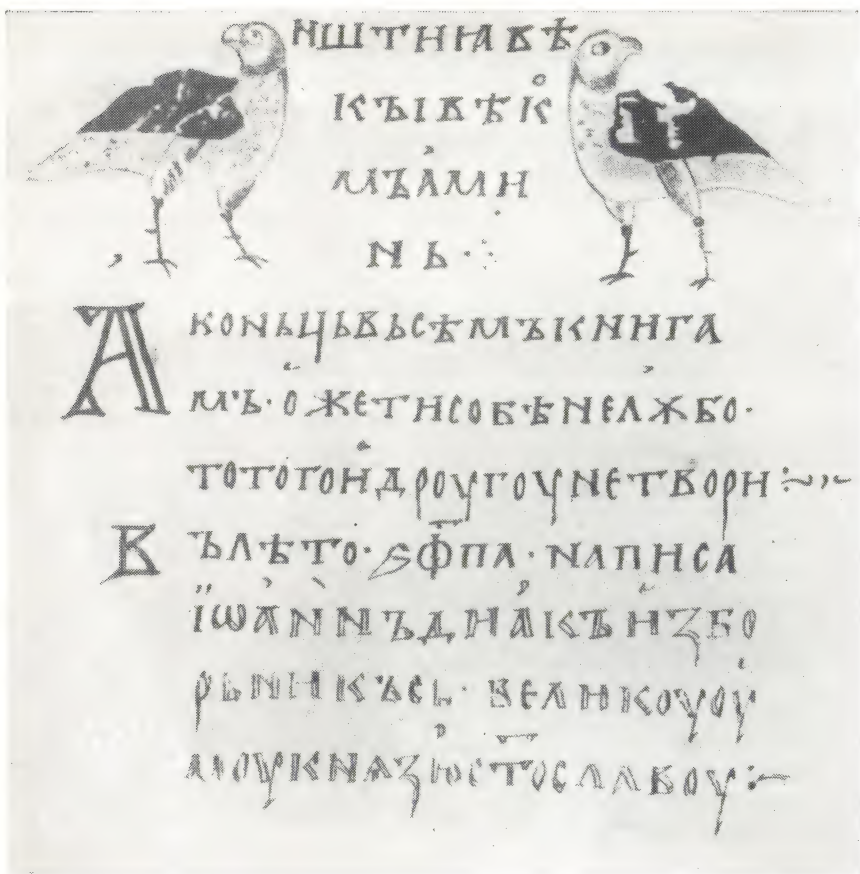 ншти и ꙗ вѣ
къı вѣк
мъ амн
нь
А коньць вьсѣмъ кнıга
мъ · оже ти собѣ не лѫбо ·
то того и дроугоу не твори :~
Въ лѣто · ҂ѕфпа · написа
їѡаннъ диакъ избо
рьникъ сь · великоуоу
моу кнѧзю ст҃ославоу :~